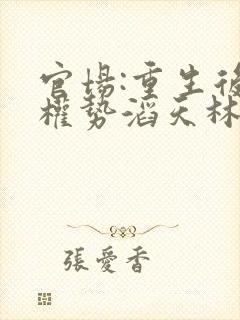 官場:重生後
權勢滔天林
張愛香